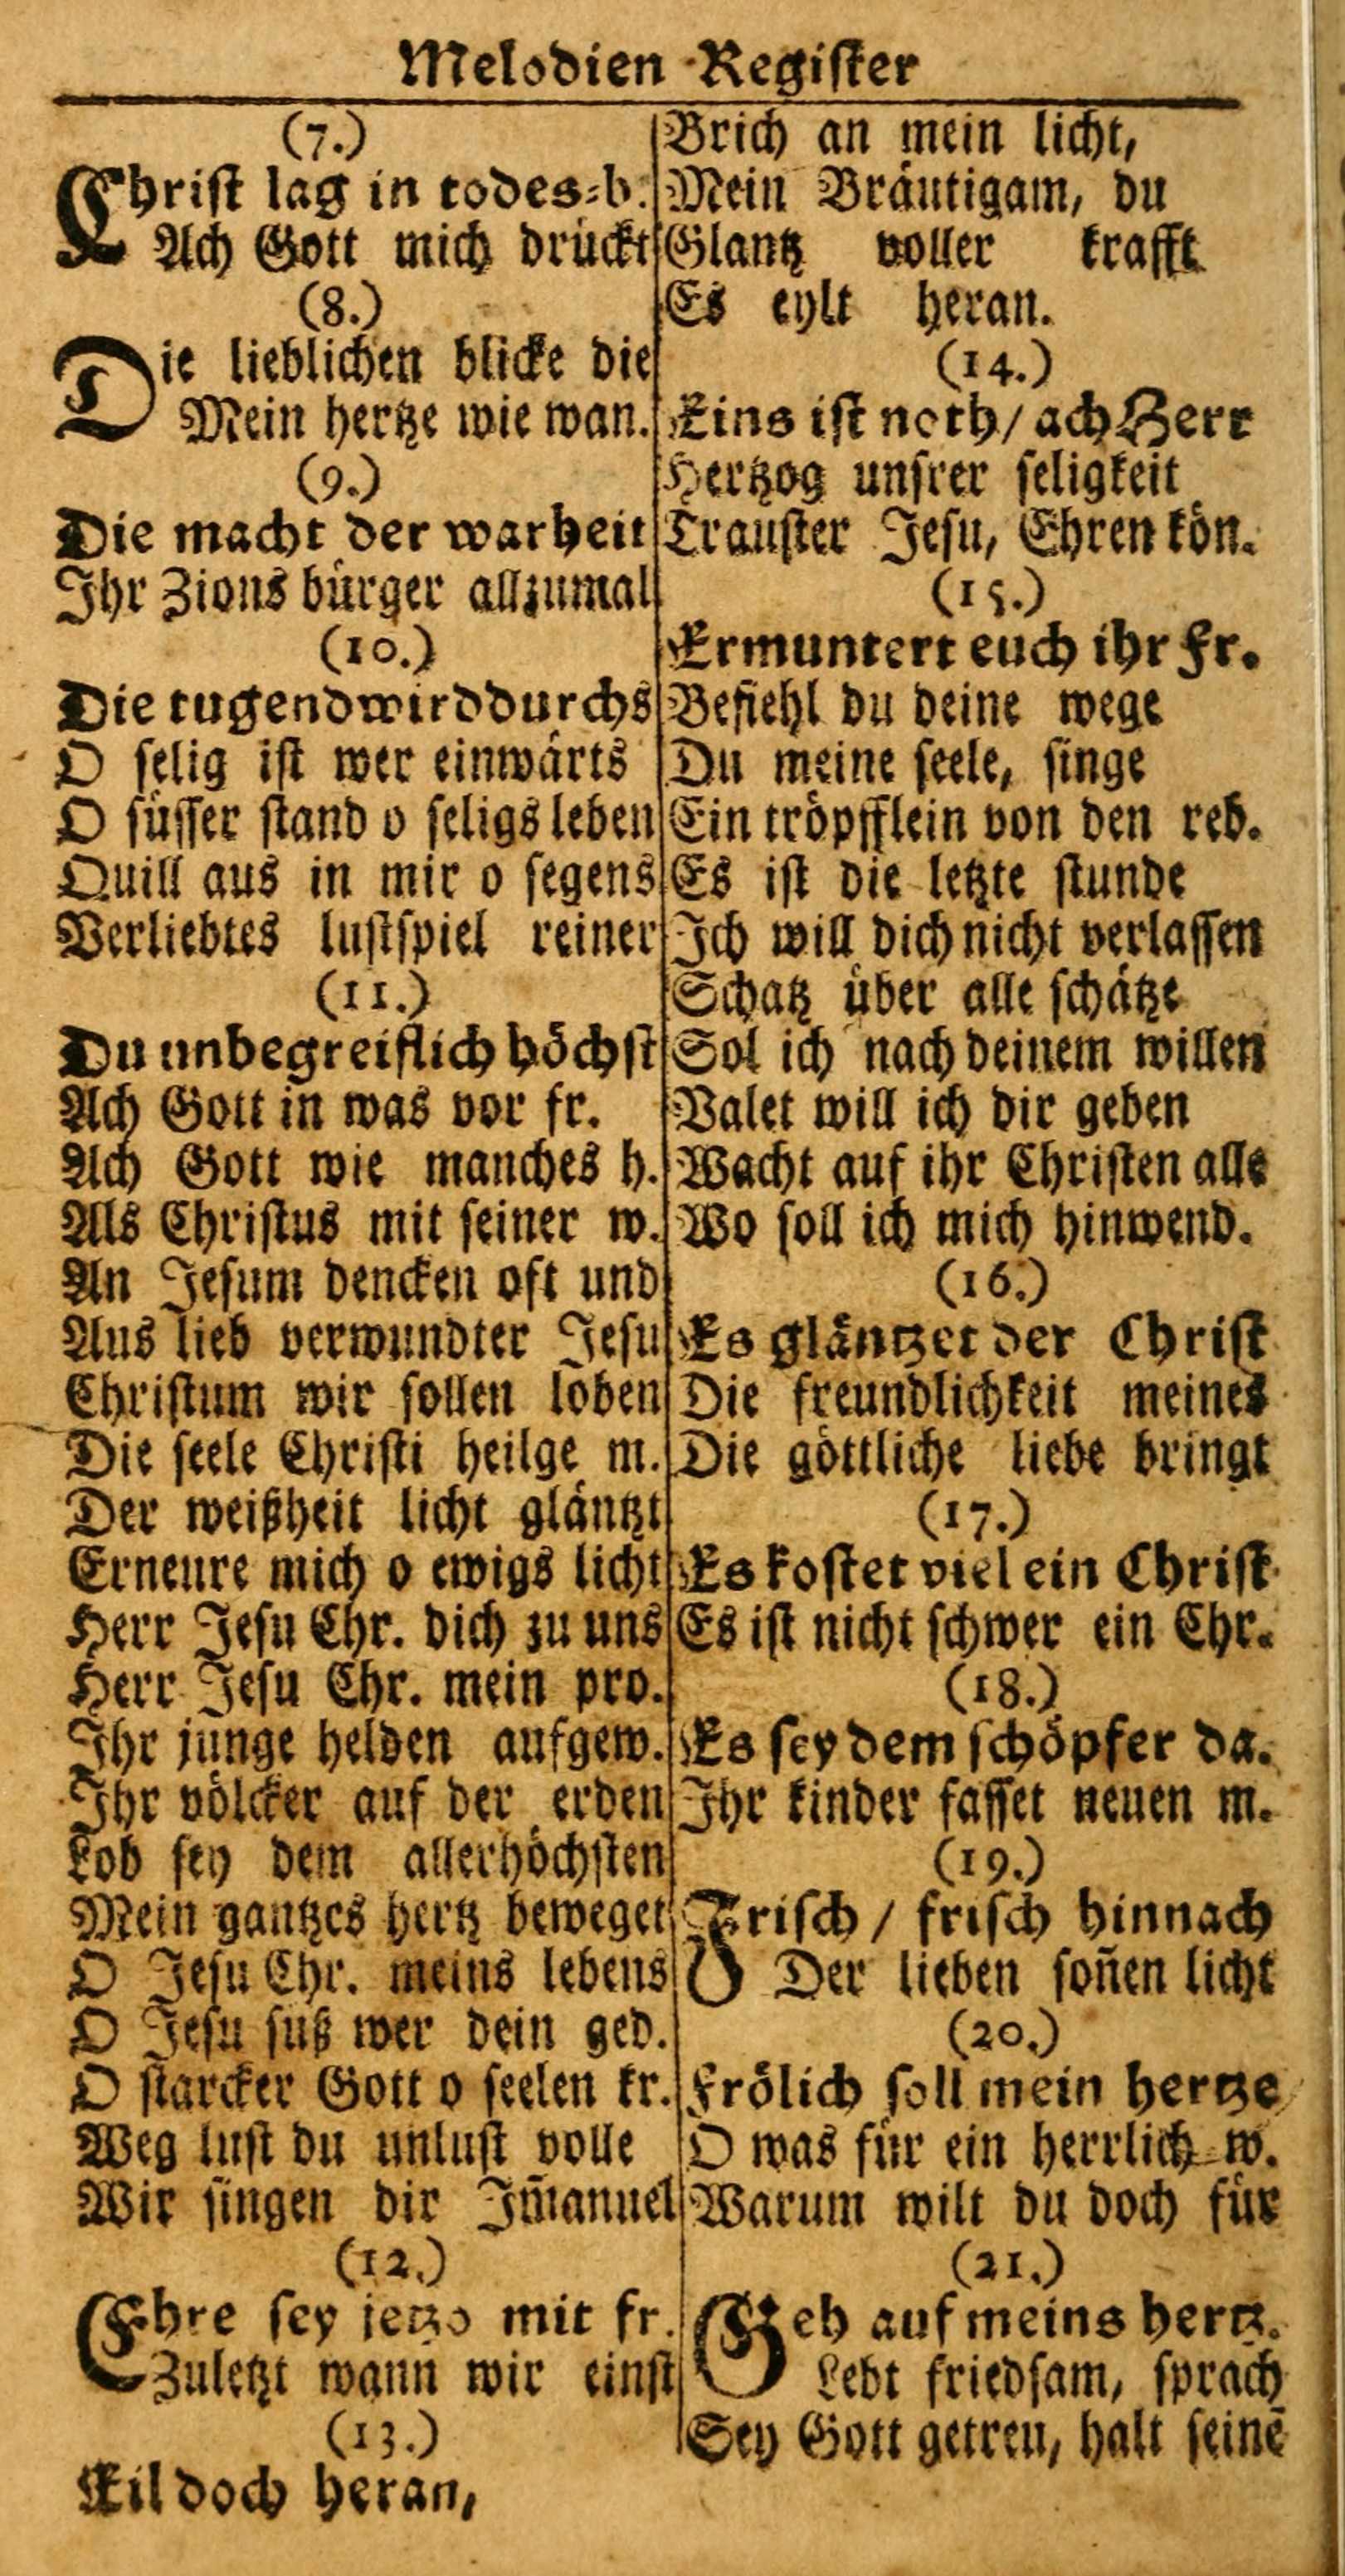 Melodien Register
(7.)
Christ lag in todes=b.
Ach Gott mich drückt
(8.)
Die lieblichen blicke die
Mein hertze wie wan.
(9.)
Die macht der warheit
Ihr Zions bürger allzumal
(10.)
Die tugend wird durchs
O selig ist wer einwärts
O süsser stand o seligs leben
Quill aus in mir o segens
Verliebtes lustspiel reiner
(11.)
Du unbegreiflich höchst
Ach Gott in was vor fr.
Ach Gott wie manches h.
Als Christus mit seiner w.
An Jesum dencken oft und
Aus lieb verwundter Jesu
Christum wir sollen loben
Die seele Christi heilge m.
Der weißheit licht gläntzt
Erneure mich o ewigs licht
Herr Jesu Chr. dich zu uns
Herr Jesu Chr. mein pro.
Ihr junge helden aufgew.
Ihr völcker auf der erden
Lob sey dem allerhöchsten
Mein gantzes hertz beweget
O Jesu Chr. meins lebens
O Jesu süß wer dein ged.
O starcker Gott o seelen kr.
Weg lust du unlust volle
Wir singen dir Im̄anuel
(12.)
Ehre sey jetzo mit fr.
Zuletzt wann wir einst
(13.)
Eil doch heran,
Brich an mein licht,
Mein Bräutigam, du
Glantz voller krafft
Es eylt heran.
(14.)
Eins ist noth/ ach Herr
Hertzog unsrer seligkeit
Trauster Jesu, Ehren kön.
(15.)
Ermuntert euch ihr Fr.
Befiehl du deine wege
Du meine seele, singe
Ein tröpfflein von den reb.
Es ist die letzte stunde
Ich will dich nicht verlassen
Schatz über alle schätze
Sol ich nach deinem willen
Valet will ich dir geben
Wacht auf ihr Christen alle
Wo soll ich mich hinwend.
(16.)
Es gläntzet der Christ
Die freundlichkeit meines
Die göttliche liebe bringt
(17.)
Es kostet viel ein Christ
Es ist nicht schwer ein Chr.
(18.)
Es sey dem schöpfer da.
Ihr kinder fasset neuen m.
(19.)
Frisch / frisch hinnach
Der lieben son̄en licht
(20.)
Frölich soll mein hertze
O was für ein herrlich w.
Warum wilt du doch für
(21.)
Geh auf meins hertz.
Lebt friedsam, sprach
Sey Gott getreu, halt seinē